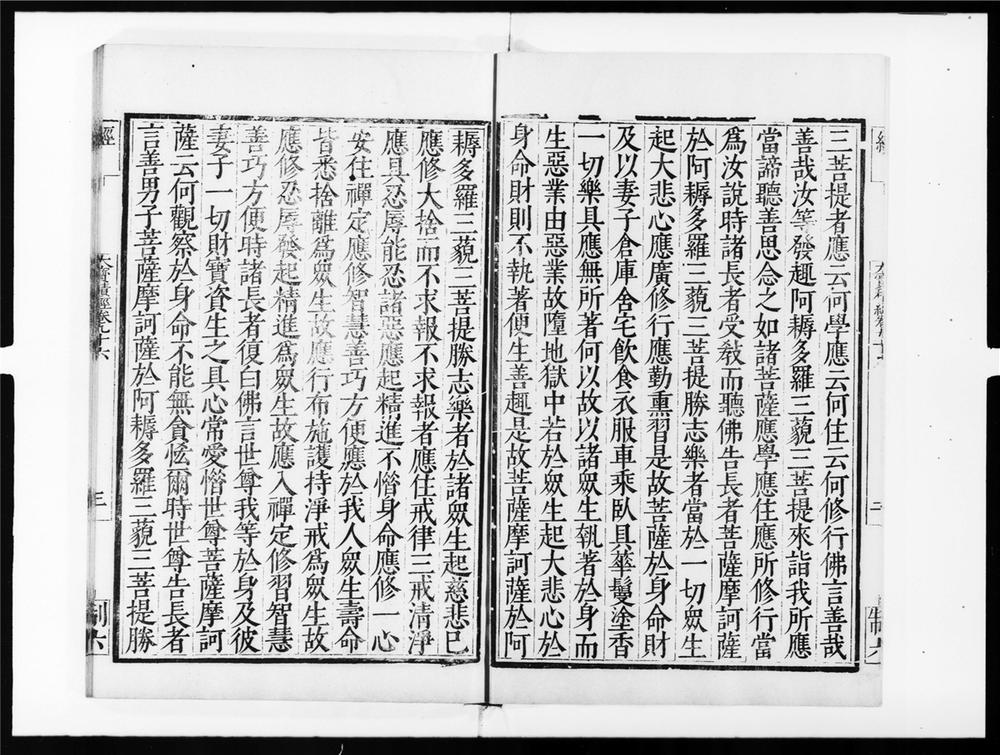 三菩提者應云何學應云何住云何修行佛言善哉
善哉汝等發趣阿耨多羅三藐三菩提來詣我所應
當諦聽善思念之如諸菩薩應學應住應所修行當
爲汝說時諸長者受敎而聽佛告長者菩薩摩訶薩
於阿耨多羅三藐三菩提勝志樂者當於一切眾生
起大悲心應廣修行應勤熏習是故菩薩於身命財
及以妻子倉庫舍宅飲食衣服車乘臥具華鬘塗香
一切樂具應無所著何以故以諸眾生執著於身而
生惡業由惡業故墮地獄中若於眾生起大悲心於
身命財則不執著便生善趣是故菩薩摩訶薩於阿
耨多羅三藐三菩提勝志樂者於諸眾生起慈悲已
應修大捨而不求報不求報者應住戒律三戒清淨
應具忍辱能忍諸惡應起精進不惜身命應修一心
安住禪定應修智慧善巧方便應於我人眾生壽命
皆悉捨離爲眾生故應行布施護持淨戒爲眾生故
應修忍辱發起精進爲眾生故應入禪定修習智慧
善巧方便時諸長者復白佛言世尊我等於身及彼
妻子一切財寶資生之具心常愛惜世尊菩薩摩訶
薩云何觀察於身命不能無貪恡爾時世尊告長者
言善男子菩薩摩訶薩於阿耨多羅三藐三菩提勝
經
大寶積經卷九十六
三
制六